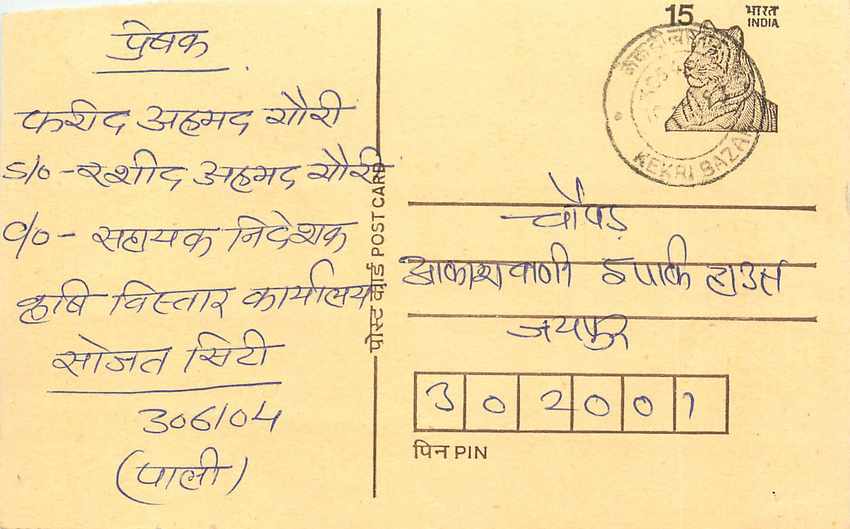 प्रेषक
फरीद अहमद गौरी
S/o - रशीद अहमद गौरी
C/o - सहायक निदेशक
कृषि विस्तार कार्यालय
सोजत सिटी
306104
(पाली)
पोस्ट कार्ड POST CARD
15 भारत
INDIA
KEKRI BAZAR
चौपड़
आकाशवाणी 5 पार्क हाउस
जयपुर
302001
पिन PIN